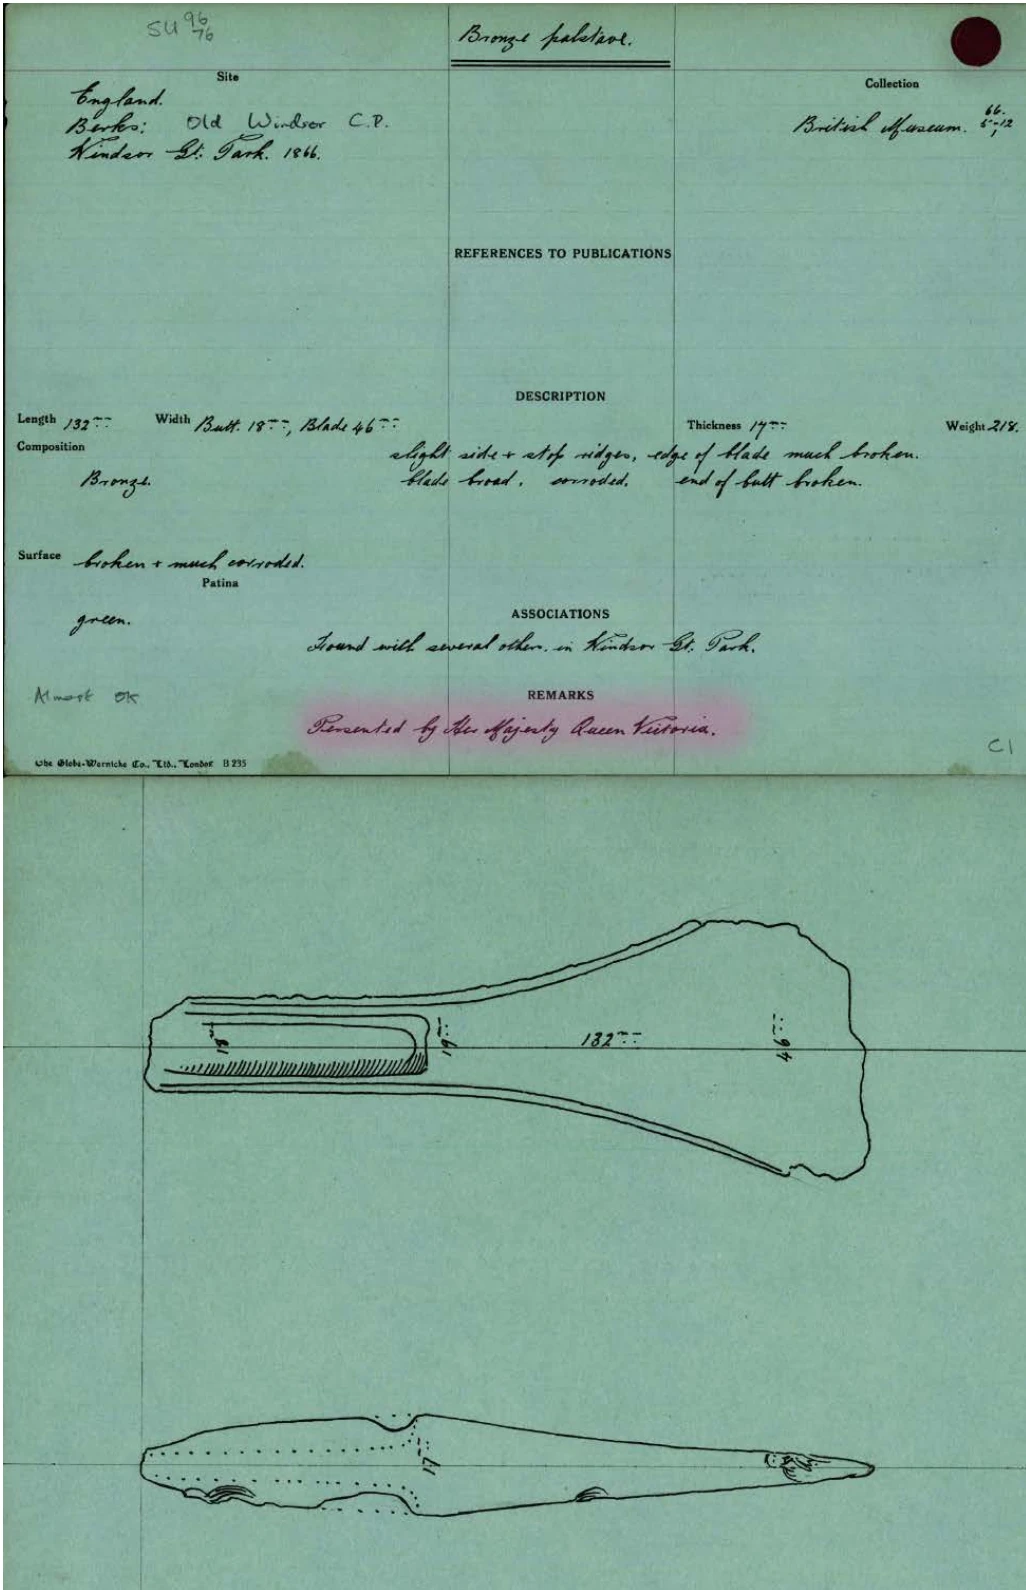 SU 96
76
Bronze palstave.
Site
England.
Berks: Old Windsor C.P.
Windsor Gt: Park. 1866.
Collection
British Museum. 66.
5-12
REFERENCES TO PUBLICATIONS
DESCRIPTION
Length 132 Width Butt. 18, Blade 46 Thickness 17 Weight 218.
Composition
Bronze.
slight side + stop ridges, edge of blade much broken.
blade broad. corroded. end of butt broken.
Surface broken + much corroded.
Patina
green.
ASSOCIATIONS
Found with several others. in Windsor Gt. Park.
Almost OK
REMARKS
Presented by Her Majesty Queen Victoria.
C1
The Globe-Wernicke Co., Ltd., London B 235
18
19
132
46
17